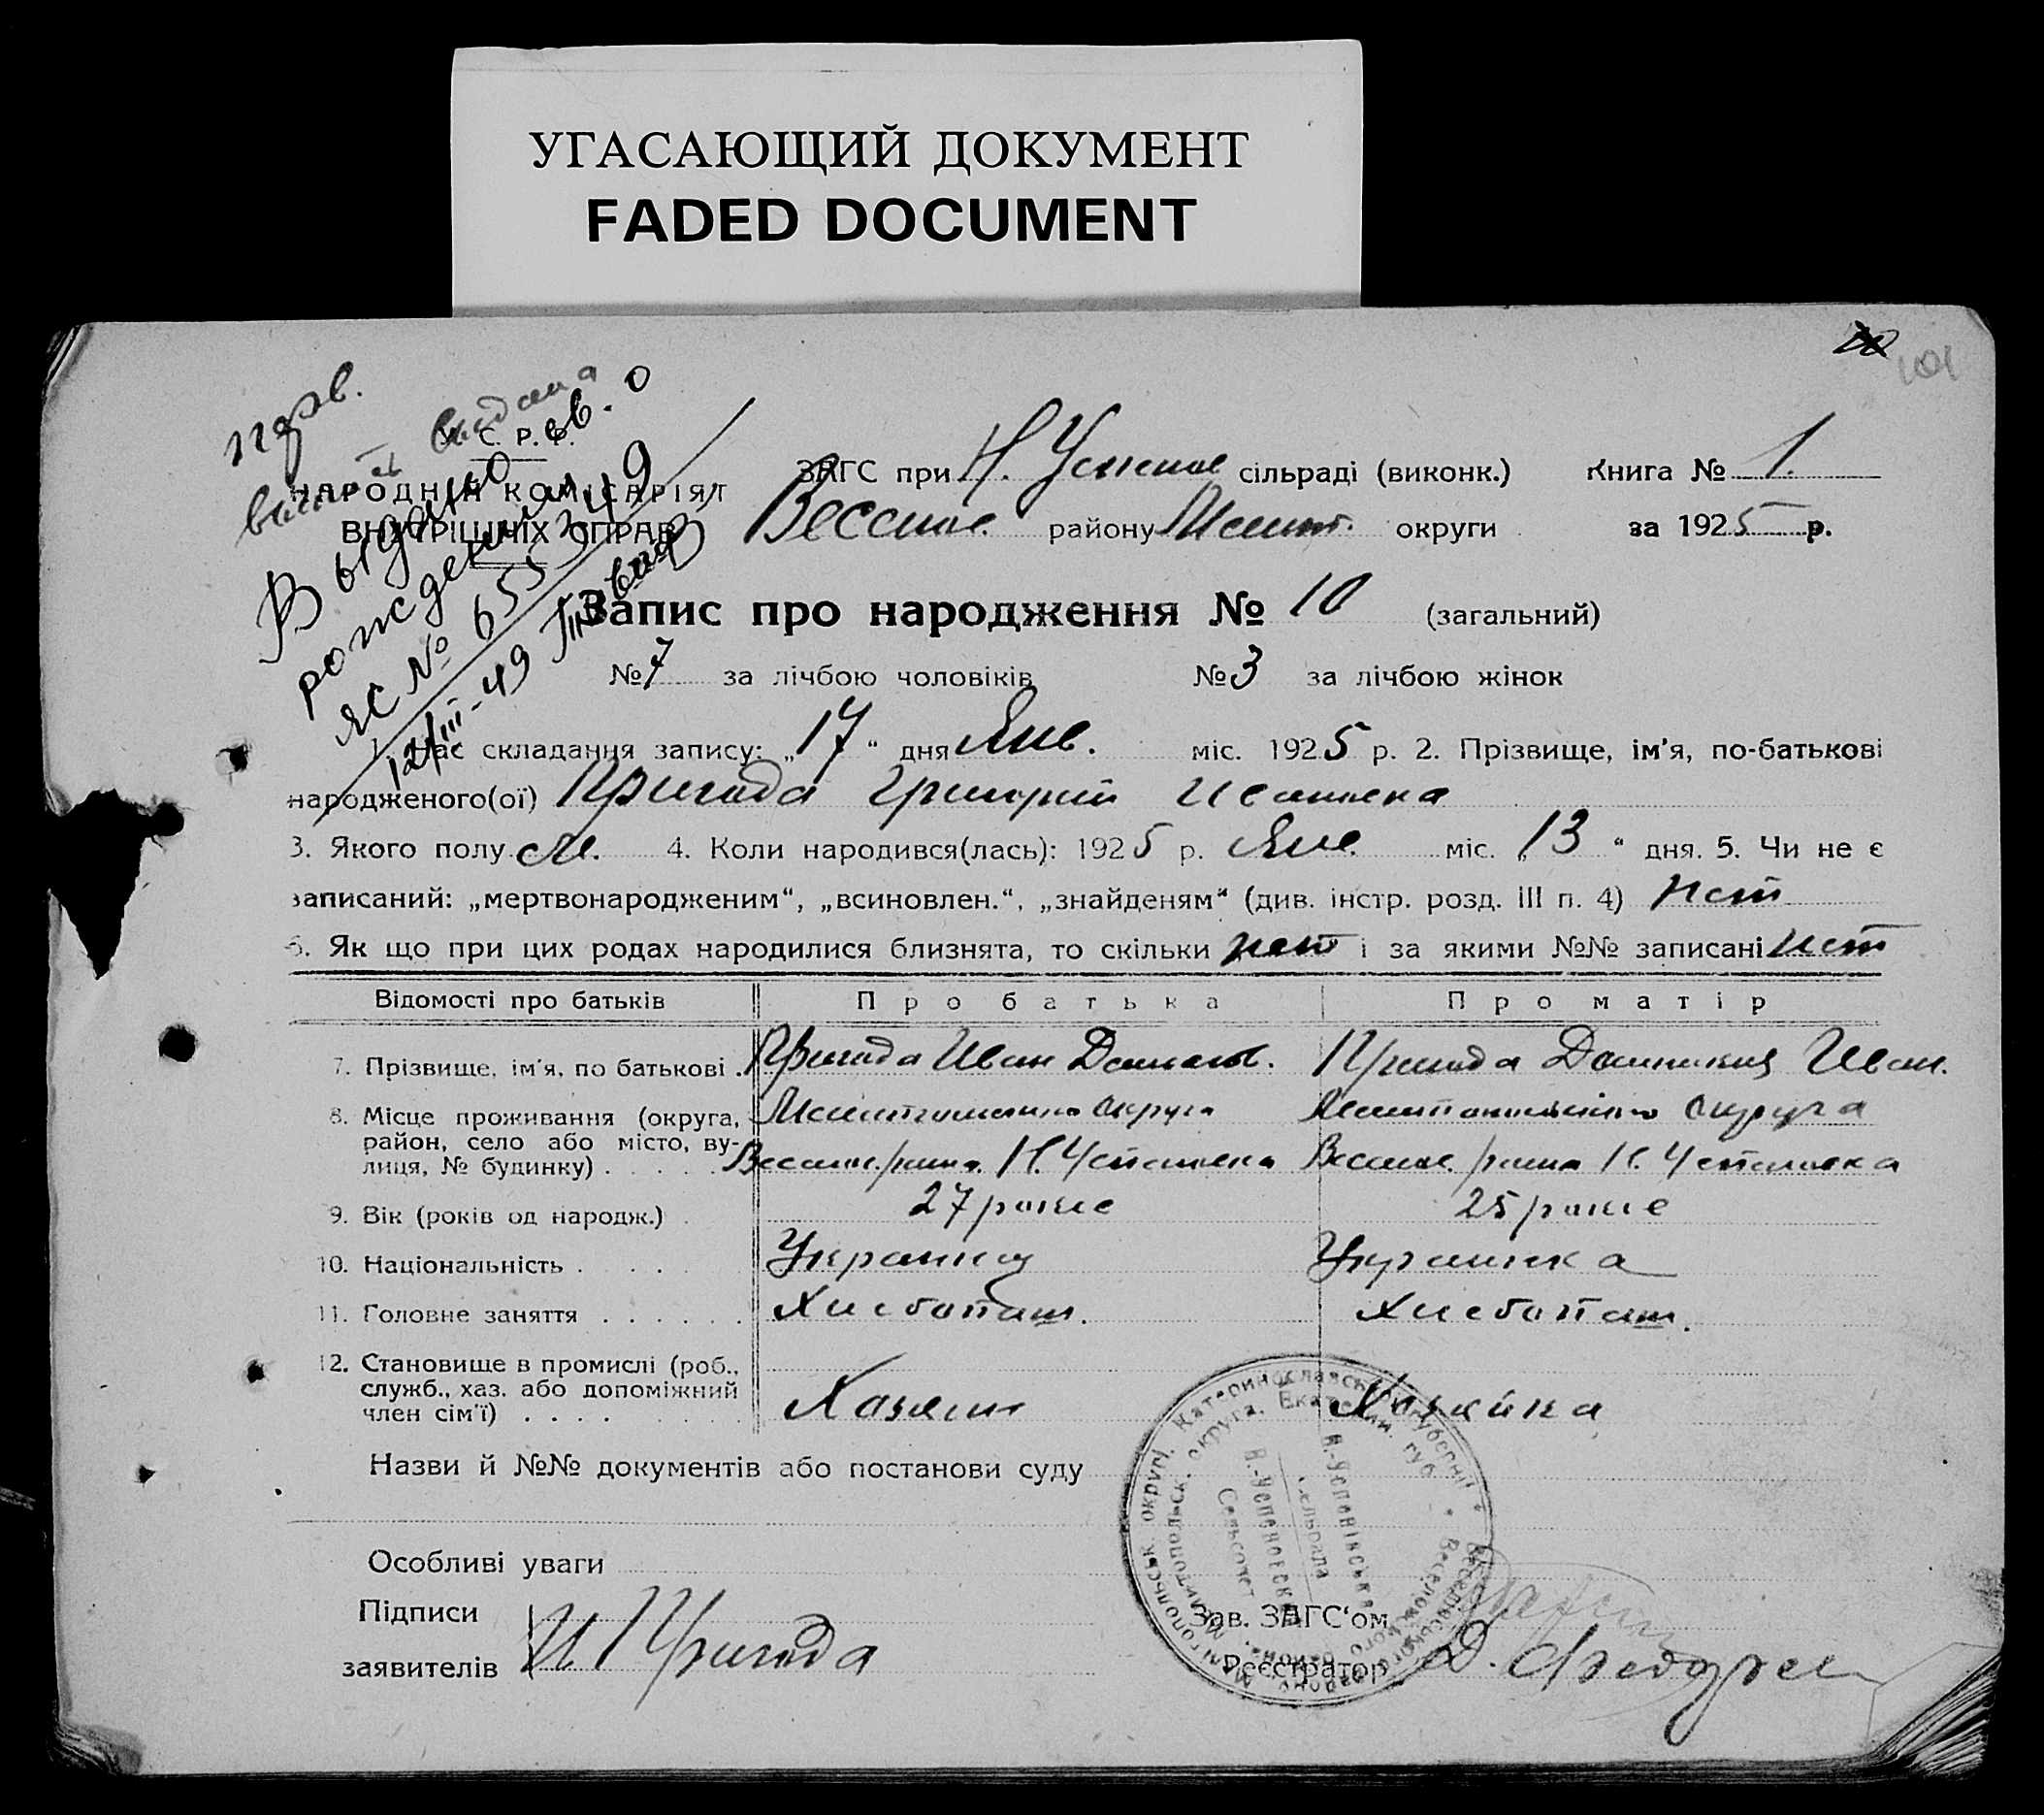 УГАСАЮЩИЙ ДОКУМЕНТ
FADED DOCUMENT
101
перв.
выдана
У. С. Р. Р.
НАРОДНІЙ КОМІСАРІЯТ
ВНУТРІШНІХ СПРАВ
Выдано св. о
рождении
ЯС № 655349
12/III-49
ЗАГС при Н. Успенск сільраді (виконк.) Книга № 1.
Веселов. району Мелит. округи за 1925 р.
Запис про народження № 10 (загальний)
№ 7 за лічбою чоловіків № 3 за лічбою жінок
1. Час складання запису: „17“ дня Янв. міс. 1925 р. 2. Прізвище, ім’я, по-батькові
народженого(ої) Пригода Григорий Иванов
3. Якого полу М. 4. Коли народився(лась): 1925 р. Янв. міс. „13“ дня. 5. Чи не є
записаний: „мертвонародженим“, „всиновлен.“, „знайденям“ (див. інстр. розд. III п. 4) нет
6. Як що при цих родах народилися близнята, то скільки нет і за якими №№ записані нет
Відомості про батьків Про батька Про матір
7. Прізвище, ім’я, по батькові . Пригода Иван Пригода Иван.
8. Місце проживання (округа, округа округа
район, село або місто, ву-
лиця, № будинку) . . . . .
9. Вік (років од народж.) . 27 25
10. Національність . . . . Украинец Украинка
11. Головне заняття . . . . . . Хлебопаш. Хлебопаш.
12. Становище в промислі (роб.,
служб., хаз. або допоміжний
член сім’ї) . . . . Хозяин Хозяйка
Назви й №№ документів або постанови суду
Особливі уваги
Підписи
заявителів И Пригода
Зав. ЗАГС‘ом
Реєстратор Д.
Катеринославської губернії * Веселівського району Мелітопольськ округі.
Екатерин. губ. * Веселовского района, Мелитопольск. округа.
Н.-Успенівська
сельрада
Н.-Успеновский
Сельсовет